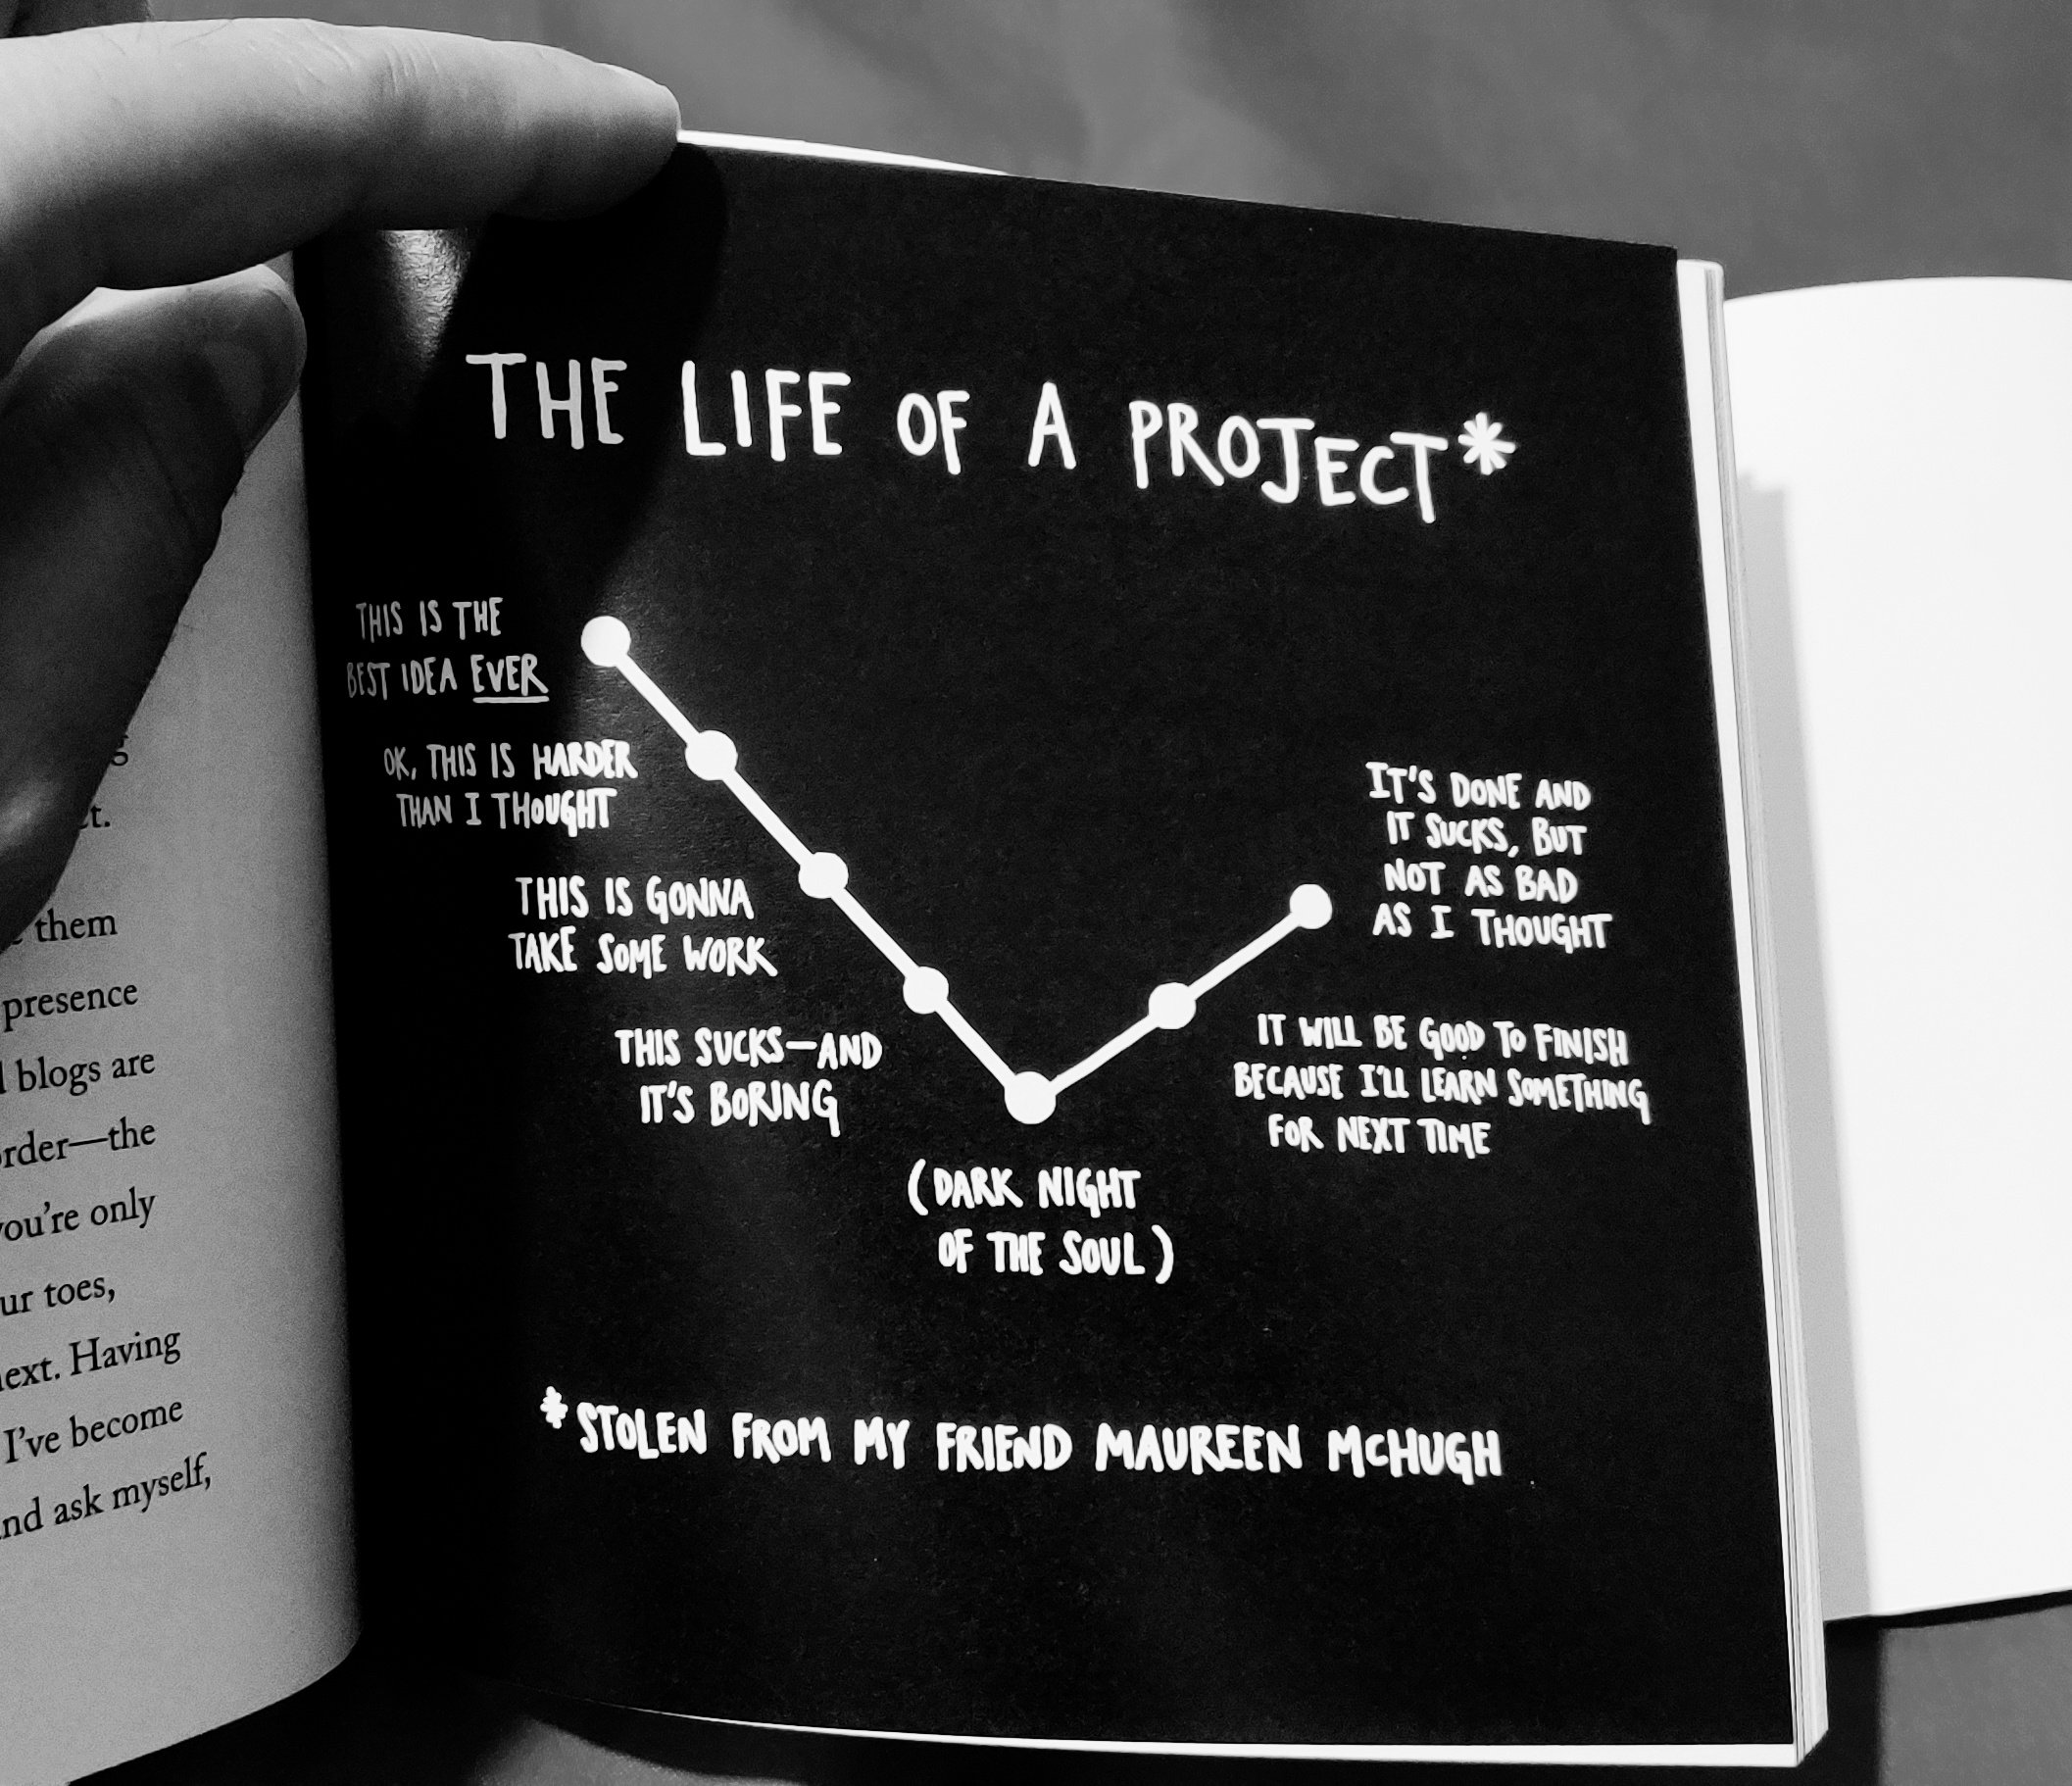 THE LIFE OF A PROJECT*
THIS IS THE
BEST IDEA EVER
OK, THIS IS HARDER
THAN I THOUGHT
THIS IS GONNA
TAKE SOME WORK
THIS SUCKS—AND
IT'S BORING
(DARK NIGHT
OF THE SOUL)
IT WILL BE GOOD TO FINISH
BECAUSE I'LL LEARN SOMETHING
FOR NEXT TIME
IT'S DONE AND
IT SUCKS, BUT
NOT AS BAD
AS I THOUGHT
*STOLEN FROM MY FRIEND MAUREEN McHUGH
them
presence
blogs are
the
you're only
toes,
next. Having
I've become
and ask myself,